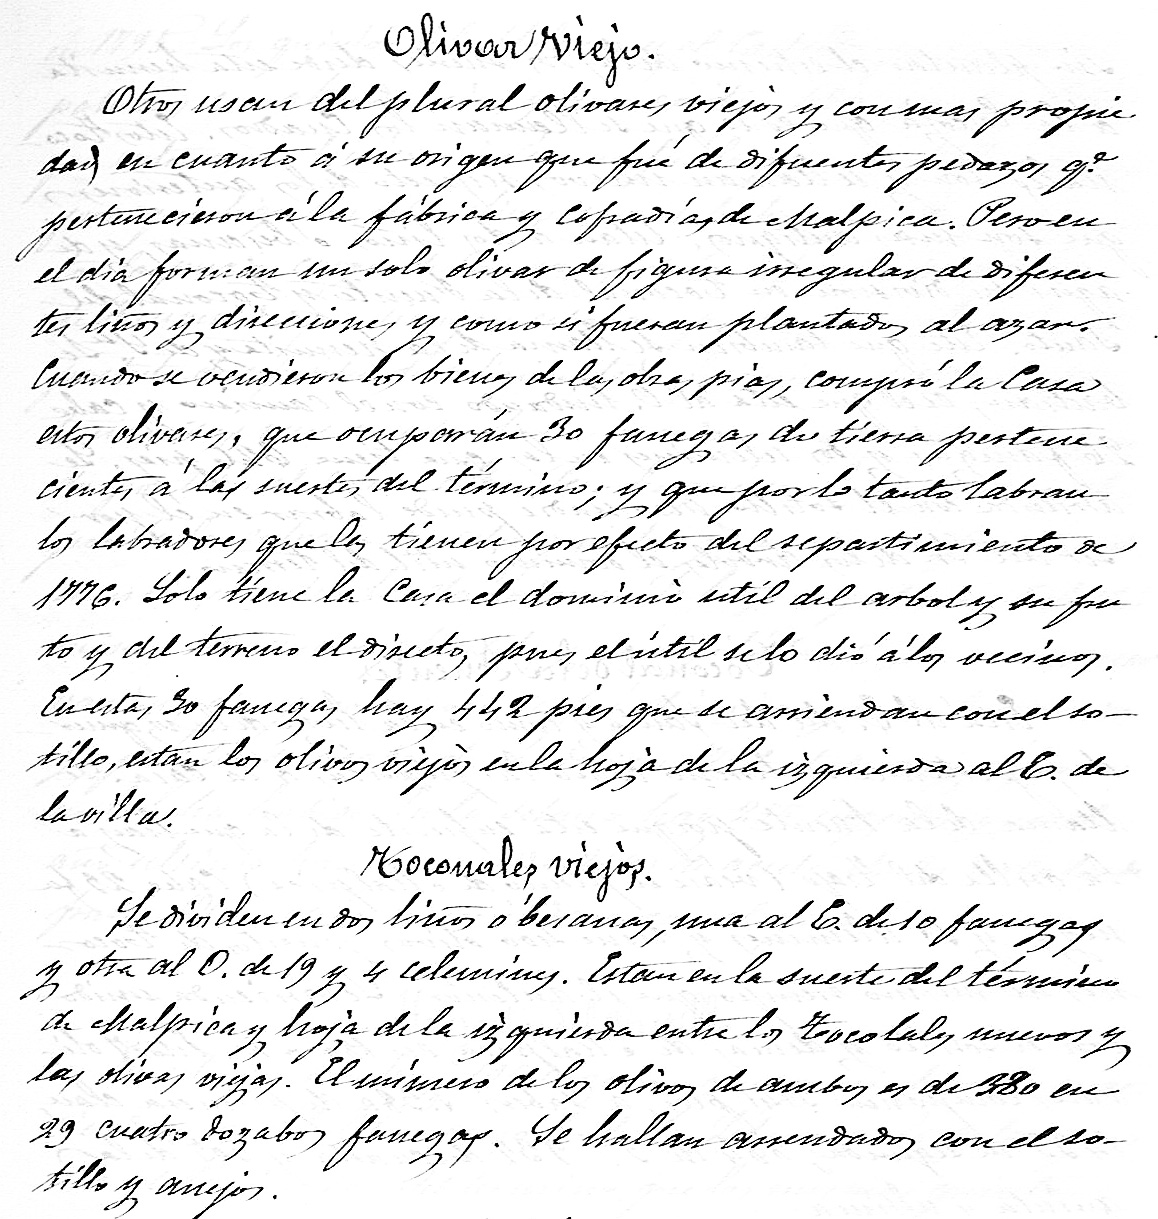 Olivar Viejo.
Otros usan del plural olivares viejos y con mas propie
dad en cuanto á su origen que fué de difuentes pedazos q.e
pertenecieron á la fábrica y cofradías de Malpica. Pero en
el dia forman un solo olivar de figura irregular de diferen
tes liños y direcciones y como si fueran plantados al azar.
Cuando se vendieron los bienes de las obras pias, compró la Casa
estos olivares, que ocuparán 30 fanegas de tierra pertene
cientes á las suertes del término; y que por lo tanto labran
los labradores que las tienen por efecto del repartimiento de
1776. Solo tiene la Casa el dominio util del arbol y su fru
to y del terreno el directo, pues el útil se lo dió á los vecinos.
En estas 30 fanegas hay 442 pies que se arriendan con el so-
tillo, estan los olivos viejos en la hoja de la izquierda al E. de
la villa.
Toconales viejos.
Se dividen en dos liños ó besanas, una al E. de 10 fanegas
y otra al O. de 19 y 4 celemines. Estan en la suerte del término
de Malpica y hoja de la izquierda entre los Tocolales nuevos y
las olivas viejas. El número de los olivos de ambos es de 380 en
29 cuatro dozabos fanegas. Se hallan arrendados con el so-
tillo y anejos.